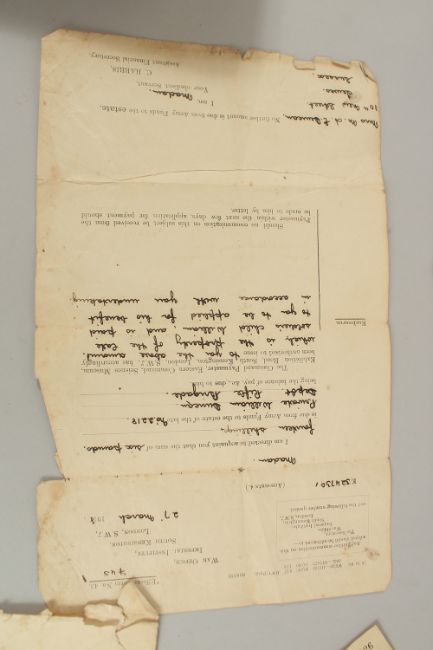 WAR OFFICE,
IMPERIAL INSTITUTE,
SOUTH KENSINGTON,
LONDON, S.W.7.
27 March 191
Imperial Institute,
South Kensington,
London, S.W.7.
and the following number quoted.
E 324730/1
(Accounts 4.)
Madam,
I am directed to acquaint you that the sum of six pounds
fourteen shillings
is due from Army Funds to the estate of the late No. 2212
Private William Duncan
Depôt Rifle Brigade
being the balance of pay, &c. due to him.
The Command Paymaster, Eastern Command, Science Museum,
Exhibition Road, South Kensington, London, S.W.7, has accordingly
been authorised to issue to you the above amount
which is the property of the late
soldier's child William, and is paid
to you to be applied for his benefit
in accordance with your undertaking.
Enclosures.
Should no communication on this subject be received by you from the
Paymaster within the next few days, application for payment should
be made to him by letter.
No further amount is due from Army Funds to the estate.
I am, Madam,
Your obedient Servant,
C. HARRIS,
Assistant Financial Secretary.
Duncan,
10 New Street
Sussex.